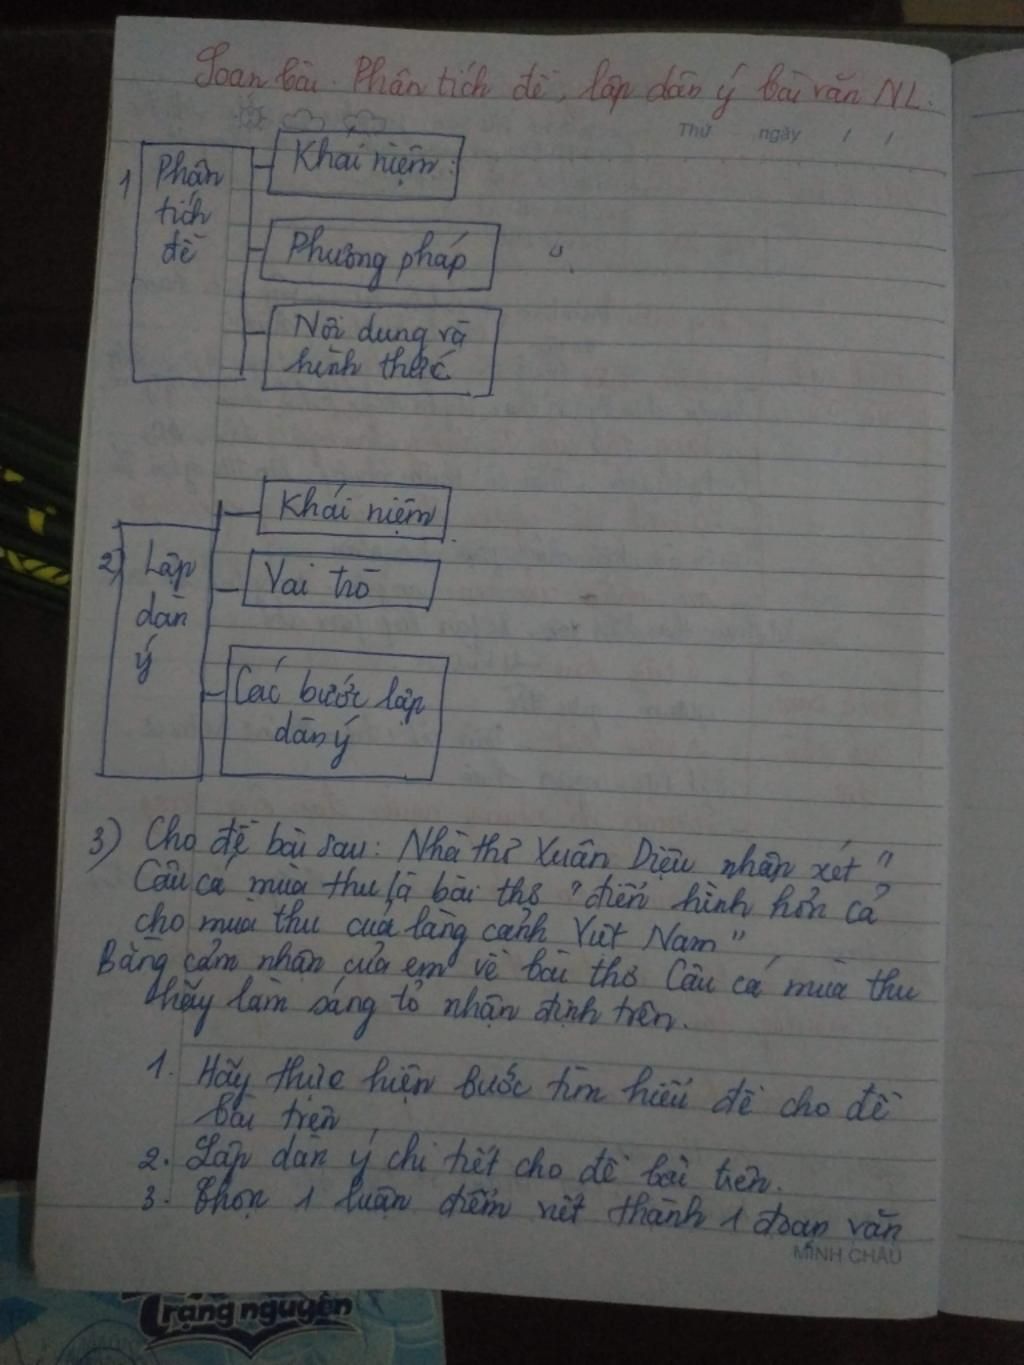 Soạn bài. Phân tích đề, lập dàn ý bài văn NL.
Thứ ngày / /
1 Phân tích đề
Khái niệm:
Phương pháp
Nội dung và
hình thức
2) Lập dàn ý
Khái niệm
Vai trò
Các bước lập
dàn ý
3) Cho đề bài sau: Nhà thơ Xuân Diệu nhận xét "
Câu cá mùa thu là bài thơ "điển hình hơn cả
cho mùa thu của làng cảnh Việt Nam"
Bằng cảm nhận của em về bài thơ Câu cá mùa thu
hãy làm sáng tỏ nhận định trên.
1. Hãy thực hiện bước tìm hiểu đề cho đề
bài trên
2. Lập dàn ý chi tiết cho đề bài trên.
3. Chọn 1 luận điểm viết thành 1 đoạn văn
MINH CHÂU
Trạng nguyên